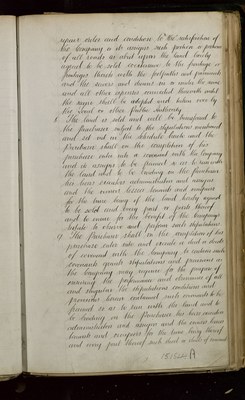 repair order and condition to the satisfaction of
the Company or its assigns such portion or portions
of all roads as abut upon the land hereby
agreed to be sold coextensive to the frontage or
frontages thereto with the footpaths and pavements
and the sewers and drains in or under the same
and all other expenses connected therewith until
the same shall be adopted and taken over by
the Local or other public Authority.
The land is sold and will be transferred to
the Purchaser subject to the stipulations mentioned
and set out in the Schedule hereto and the
Purchaser shall on the completion of his
purchase enter into a covenant with the Company
and its assigns to be framed so as to run with
the land and to be binding on the Purchaser
his heirs executors administrators and assigns
and the owners lessees tenants and occupiers
for the time being of the land hereby agreed
to be sold and every part or parts thereof
and to enure for the benefit of the Company's
Estate to observe and perform such stipulations
The Purchaser shall on the completion of his
purchase enter into and execute a deed or deeds
of covenant with the Company to contain such
covenants grants stipulations and provisions as
the Company may require for the purpose of
ensuring the performance and observance of all
and singular the stipulations conditions and
provisions herein contained such covenants to be
framed so as to run with the land and to
be binding on the Purchaser his heirs executors
administrators and assigns and the owners lessees
tenants and occupiers for the time being thereof
and every part thereof such deed or deeds of covenant